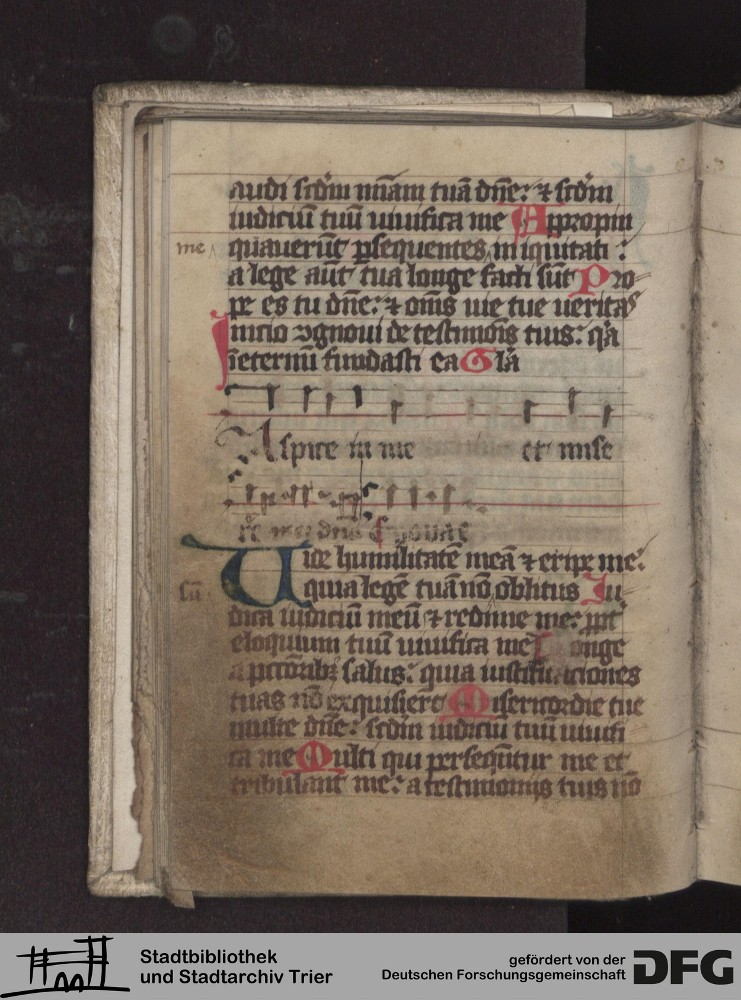 audi scdm miam tuā dne: ⁊ scdm
iudiciū tuū uiuifica me Appropin
me
quauerūt psequentes iniquitati :
a lege aūt tua longe facti sūt Pro
pe es tu dne: ⁊ oms uie tue ueritas
Inicio ꝯgnoui de testimoiis tuis: qa
ieternū fundasti ea Gla
Aspice in me et mise
re mei dne Euouae
Uide humilitatē meā ⁊ eripe me:
quia legē tuā nō oblitus Iu
sū
dica iudiciū meū ⁊ redime me: ppt
eloquium tuū uiuifica me Longe
a pctoribꝫ salus: quia iustificaciones
tuas nō exquisiert Misericordie tue
multe dne: scdm iudiciū tuū uiuifi
ca me Multi qui persequūtur me et
tribulant me: a testimoniis tuis nō
Stadtbibliothek
und Stadtarchiv Trier
gefördert von der
Deutschen Forschungsgemeinschaft
DFG